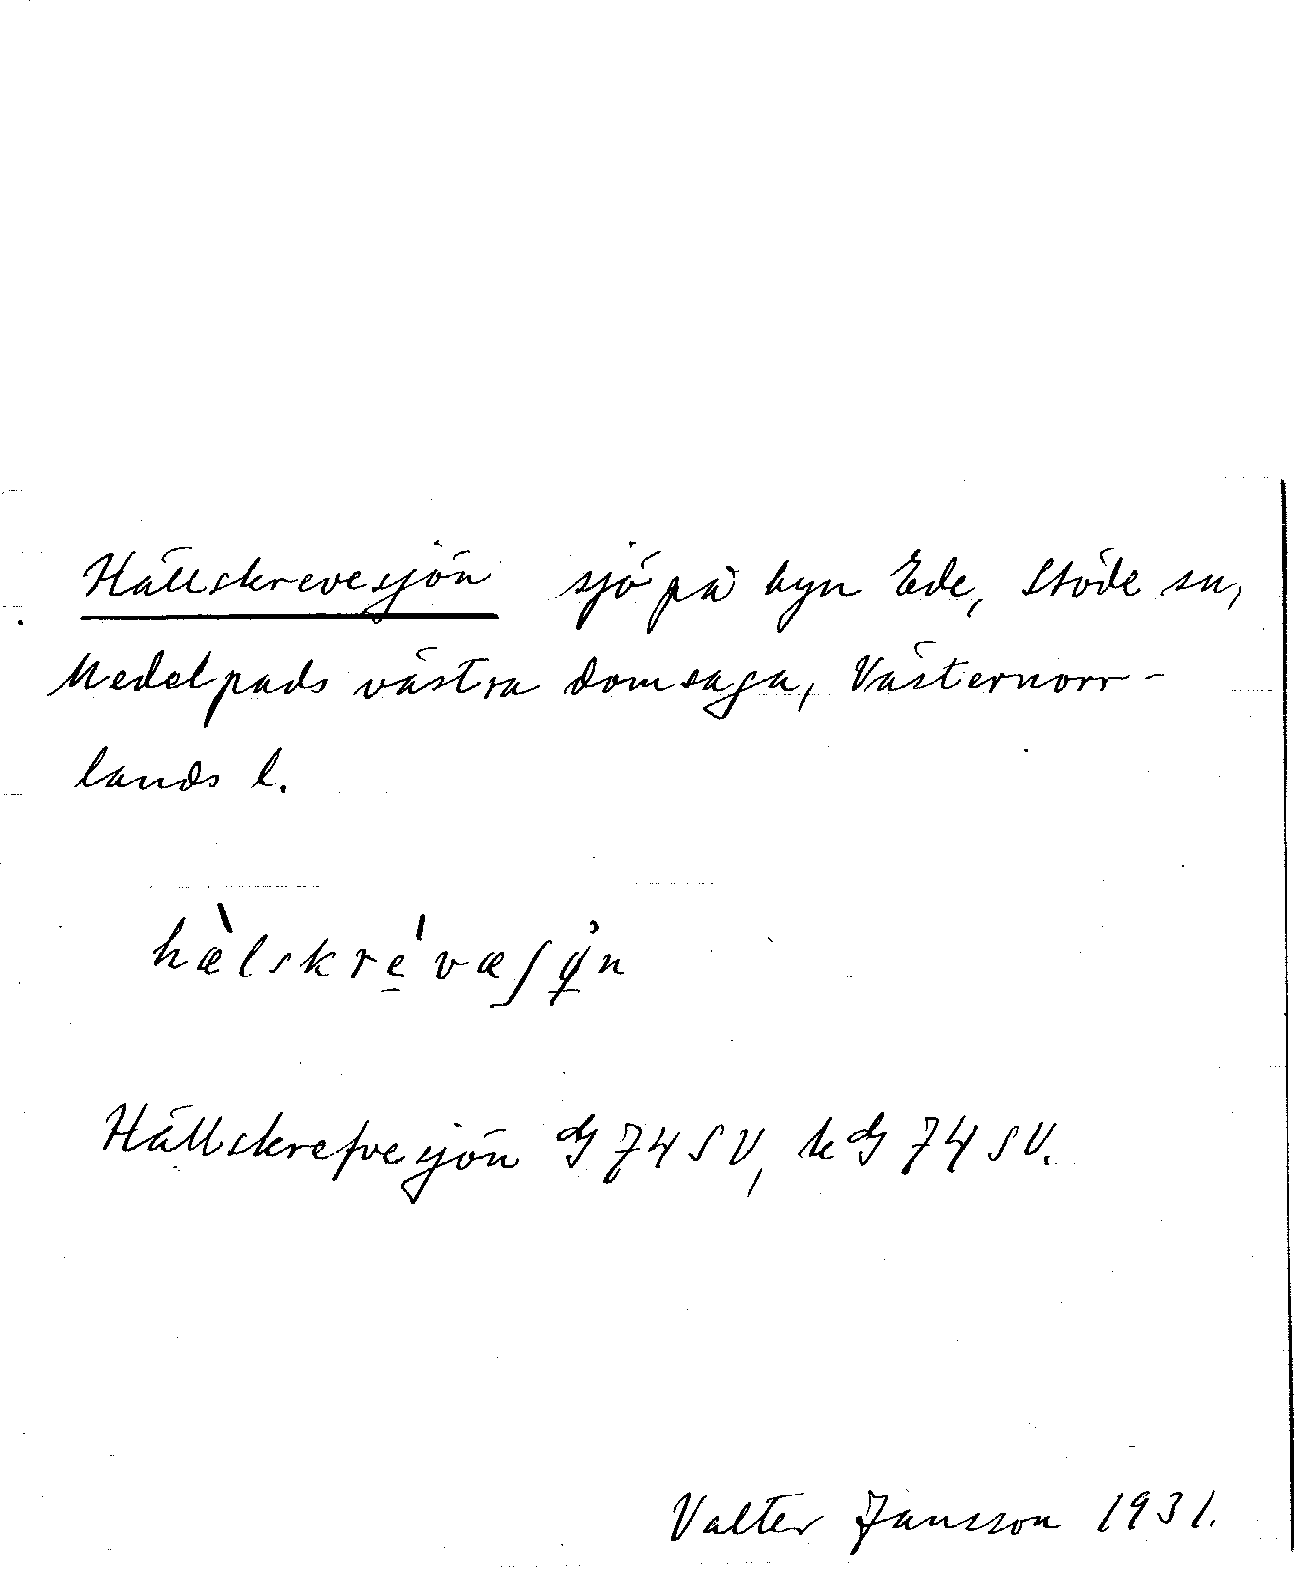 Hällskrevesjön sjö på byn Ede, Stöde sn,
Medelpads västra domsaga, Västernorr-
lands l.
hæ̀lskre̠̍væʃø̠n
Hällskrefvesjön 74 SV, 74 SV.
Valter Jansson 1931.